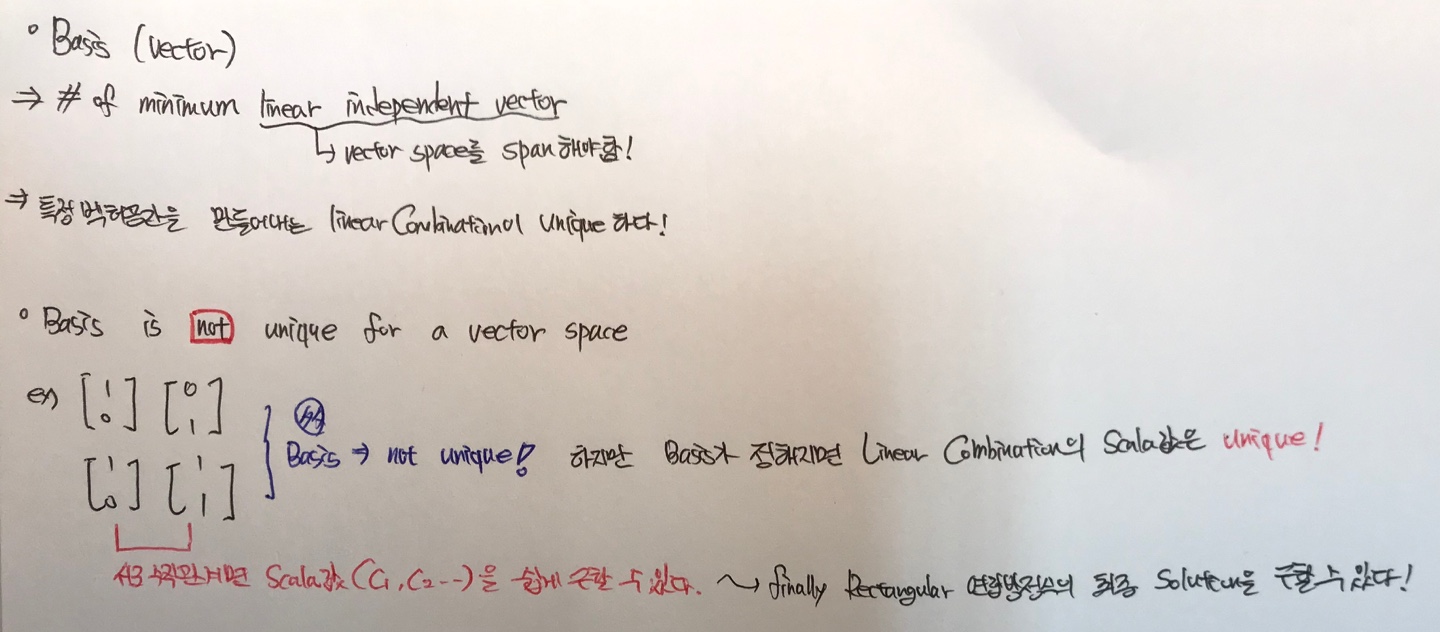 ° Basis (vector)
⇒ # of minimum linear independent vector
↳ vector space를 span해야함!
⇒ 특정벡터공간을 만들어내는 linear Combination이 unique 하다!
° Basis is not unique for a vector space
ex) [1 0] [0 1]
[1 0] [1 1]
Basis → not unique! 하지만 Basis가 정해지면 Linear Combination의 Scala값은 unique!
서로 수직관계면 Scala값(C1, C2--)을 쉽게 구할 수 있다. ~> finally Rectangular 연립방정식의 최종 Solution을 구할 수 있다!